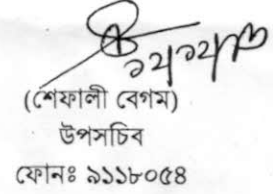 (শেফালী বেগম)
উপসচিব
ফোনঃ ৯১১৮০৫৪